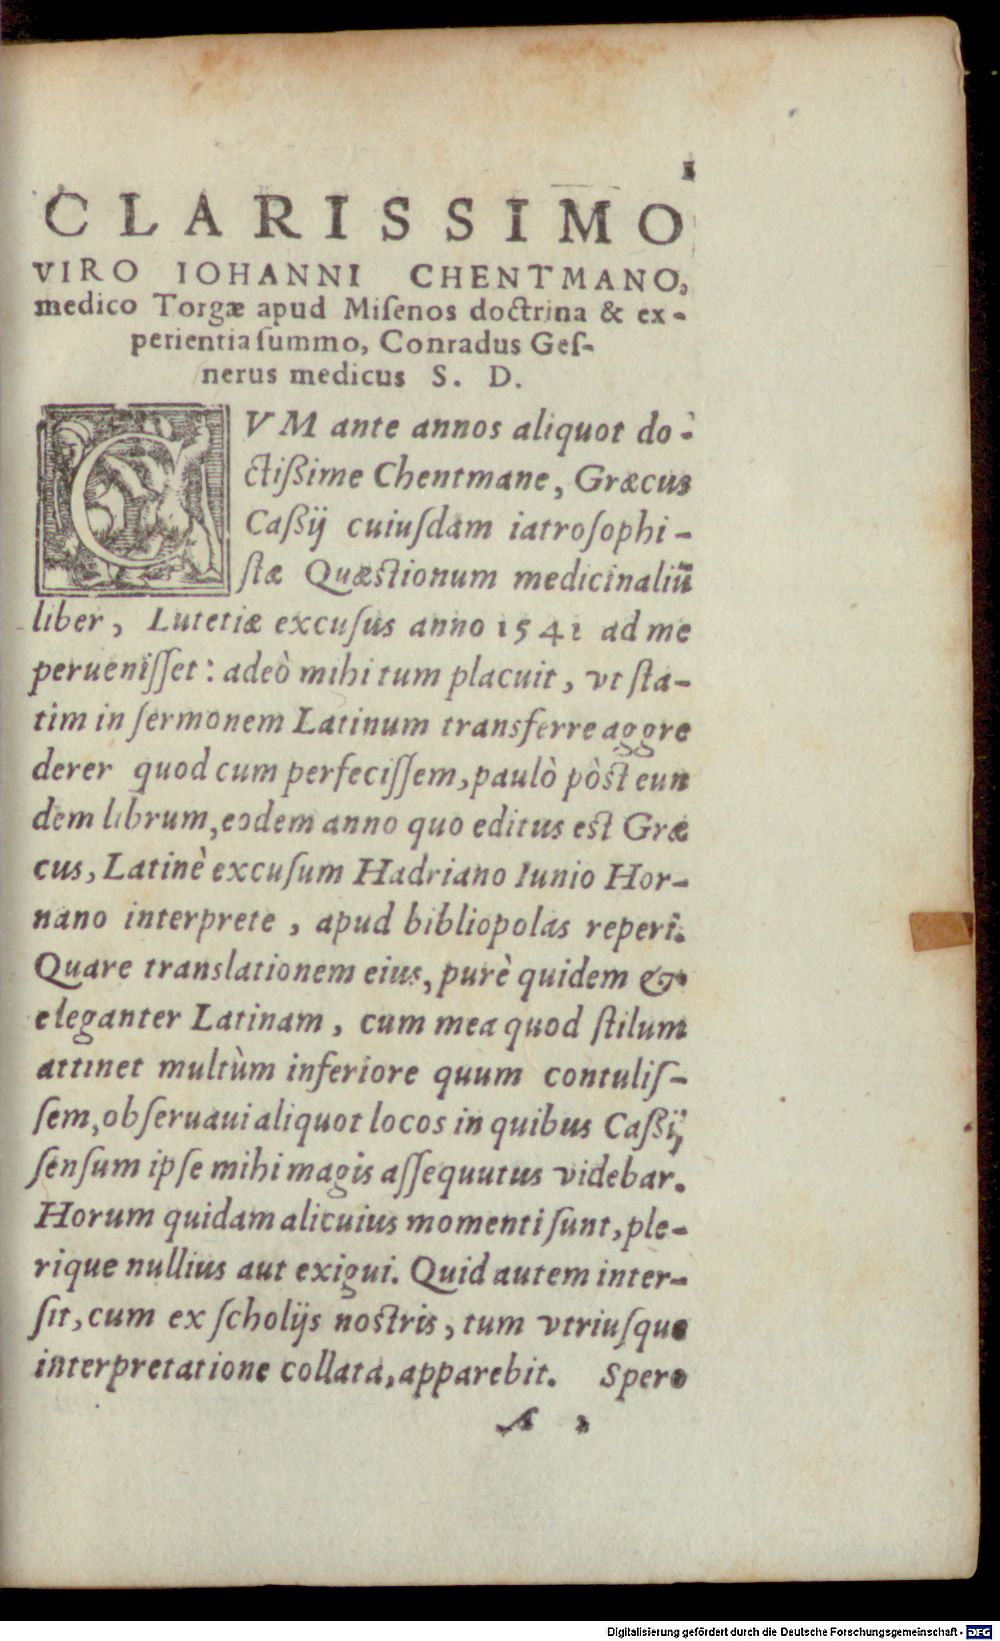 1
CLARISSIMO
VIRO IOHANNI CHENTMANO,
medico Torgæ apud Miſenos doctrina & ex-
perientia ſummo, Conradus Geſ-
nerus medicus S. D.
CVM ante annos aliquot do-
ctißime Chentmane, Græcus
Caßij cuiuſdam iatroſophi-
ſtæ Quæstionum medicinaliū
liber, Lutetiæ excuſus anno 1541 ad me
perueniſſet: adeò mihi tum placuit, vt ſta-
tim in ſermonem Latinum transferre aggre
derer quod cum perfeciſſem, paulò pòst eun
dem librum, eodem anno quo editus est Græ
cus, Latinè excuſum Hadriano Iunio Hor-
nano interprete, apud bibliopolas reperi.
Quare translationem eius, purè quidem &
eleganter Latinam, cum mea quod ſtilum
attinet multùm inferiore quum contuliſ-
ſem, obſeruaui aliquot locos in quibus Caßij
ſenſum ipſe mihi magis aſſequutus videbar.
Horum quidam alicuius momenti ſunt, ple-
rique nullius aut exigui. Quid autem inter-
ſit, cum ex ſcholijs nostris, tum vtriuſque
interpretatione collata, apparebit. Spero
A 2
Digitalisierung gefördert durch die Deutsche Forschungsgemeinschaft - DFG